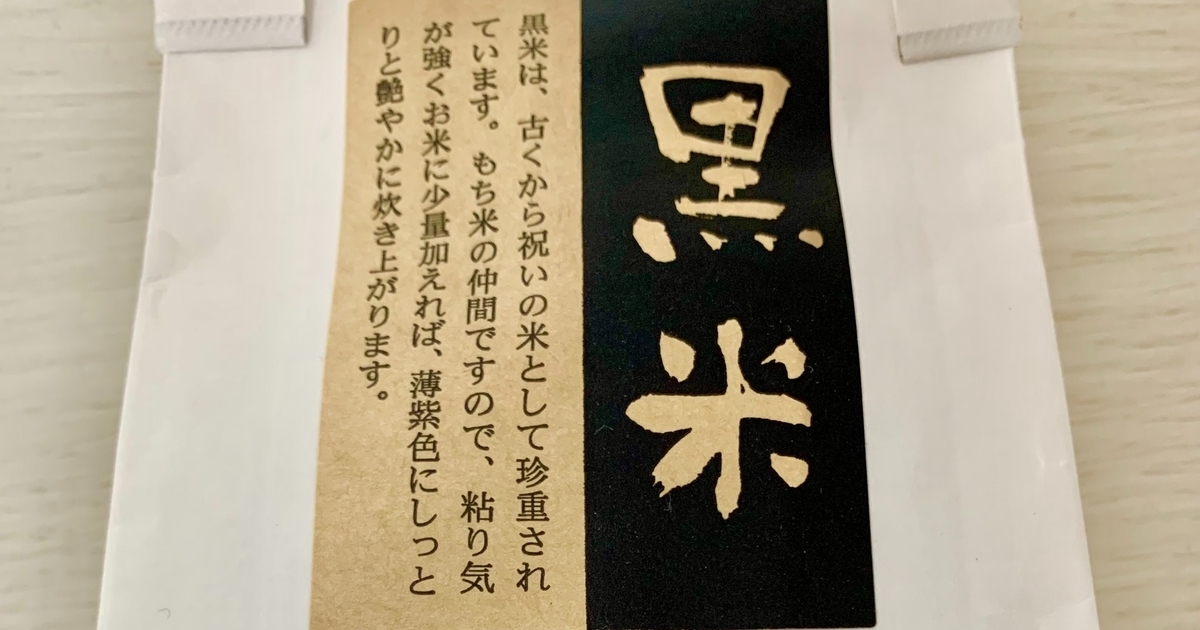 黒米
黒米は、古くから祝いの米として珍重され
ています。もち米の仲間ですので、粘り気
が強くお米に少量加えれば、薄紫色にしっと
りと艶やかに炊き上がります。